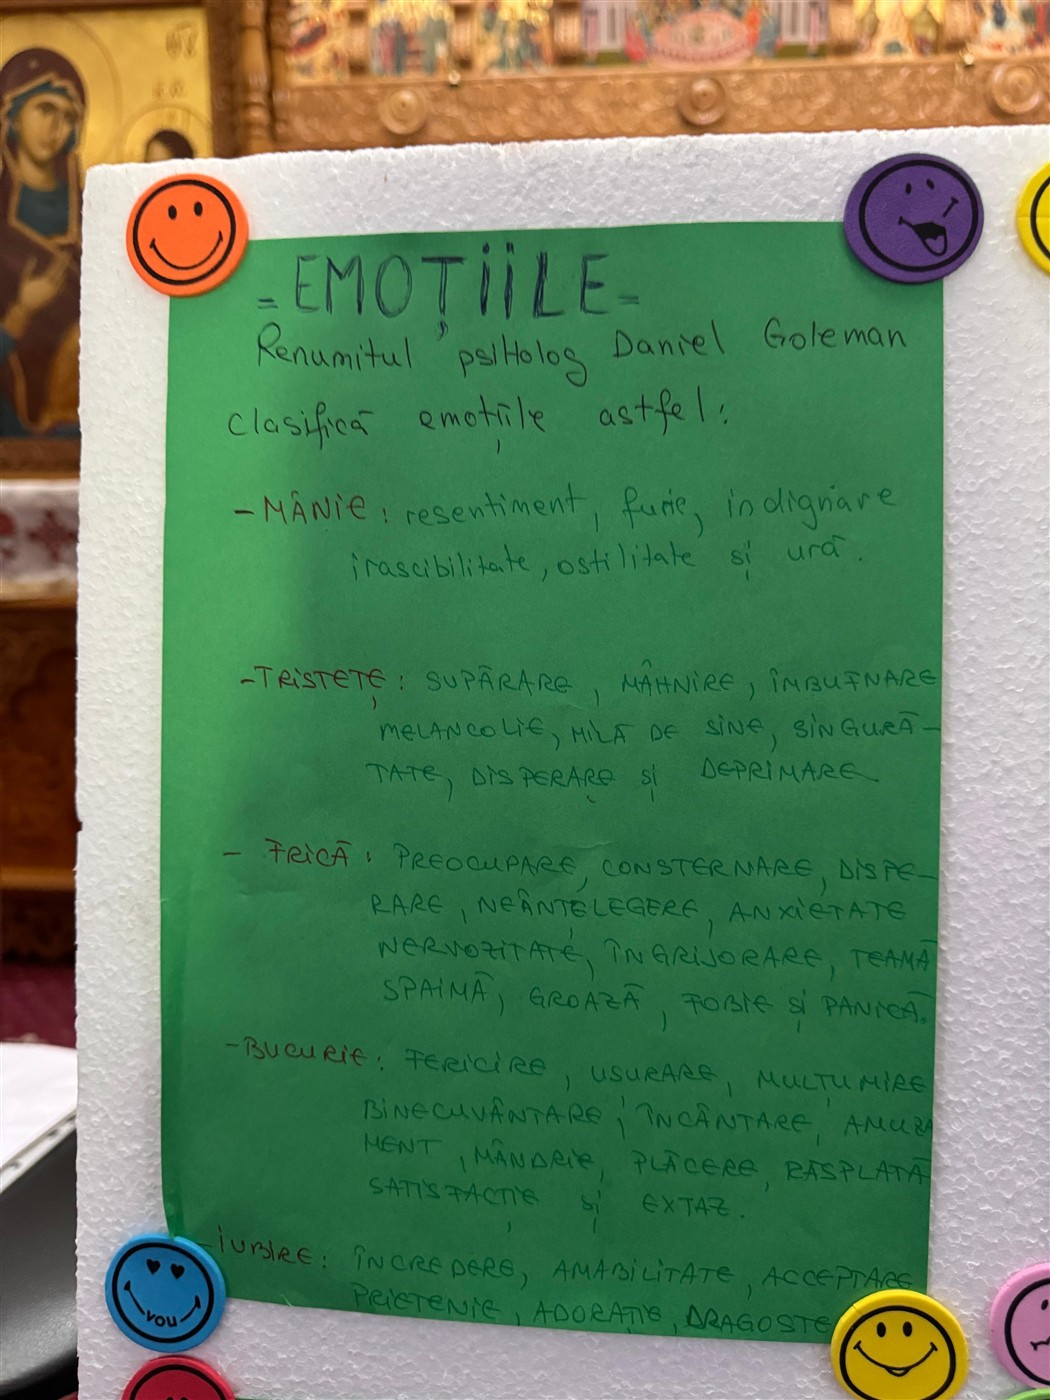 = EMOȚIILE =
Renumitul psiHolog Daniel Goleman
clasifică emoțiile astfel:
- MÂNIE: resentiment, furie, indignare
irascibilitate, ostilitate și ură.
- TRISTEȚE: SUPĂRARE, MÂHNIRE, ÎMBUFNARE
MELANCOLIE, MILĂ DE SINE, SINGURĂ-
TATE, DISPERARE și DEPRIMARE.
- FRICĂ: PREOCUPARE, CONSTERNARE, DISPE-
RARE, NEÂNȚELEGERE, ANXIETATE
NERVOZITATE, ÎNGRIJORARE, TEAMĂ
SPAIMĂ, GROAZĂ, FOBIE și PANICĂ.
- BUCURIE: FERICIRE, UȘURARE, MULȚUMIRE
BINECUVÂNTARE, ÎNCÂNTARE, AMUZA
MENT, MÂNDRIE, PLĂCERE, RĂSPLATĂ
SATISFACȚIE și EXTAZ.
- IUBIRE: ÎNCREDERE, AMABILITATE, ACCEPTARE
PRIETENIE, ADORAȚIE, DRAGOSTE
YOU